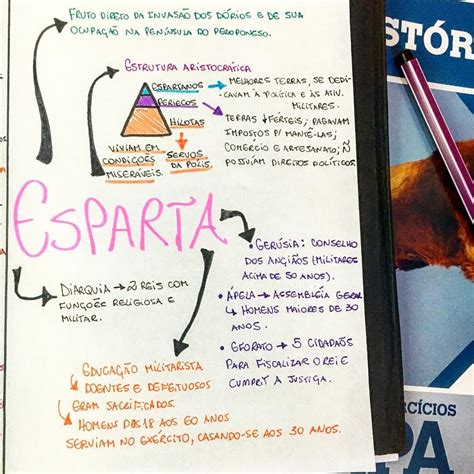 FRUTO DIRETO DA INVASÃO DOS DÓRIOS E DE SUA
OCUPAÇÃO NA PENÍNSULA DO PELOPONESO.
ESTRUTURA ARISTOCRÁTICA
ESPARTANOS → MELHORES TERRAS, SE DEDI-
CAVAM À POLÍTICA E ÀS ATIV.
MILITARES.
PERIECOS
TERRAS ↓ FÉRTEIS; PAGAVAM
IMPOSTOS P/ MANTÊ-LAS;
COMÉRCIO E ARTESANATO; Ñ
POSSUÍAM DIREITOS POLÍTICOS.
HILOTAS
VIVIAM EM
CONDIÇÕES
MISERÁVEIS.
SERVOS
DA PÓLIS.
ESPARTA
DIARQUIA → 2 REIS COM
FUNÇÕES RELIGIOSA E
MILITAR.
• GERÚSIA: CONSELHO
DOS ANCIÃOS (MILITARES
ACIMA DE 50 ANOS).
• ÁPELA → ASSEMBLÉIA GERAL
↳ HOMENS MAIORES DE 30
ANOS.
• EFORATO → 5 CIDADÃOS
PARA FISCALIZAR O REI E
CUMPRIR A JUSTIÇA.
EDUCAÇÃO MILITARISTA
→ DOENTES E DEFEITUOSOS
ERAM SACRIFICADOS.
→ HOMENS DOS 18 AOS 60 ANOS
SERVIAM NO EXÉRCITO, CASANDO-SE AOS 30 ANOS.
STÓR
RCÍCIOS
PA